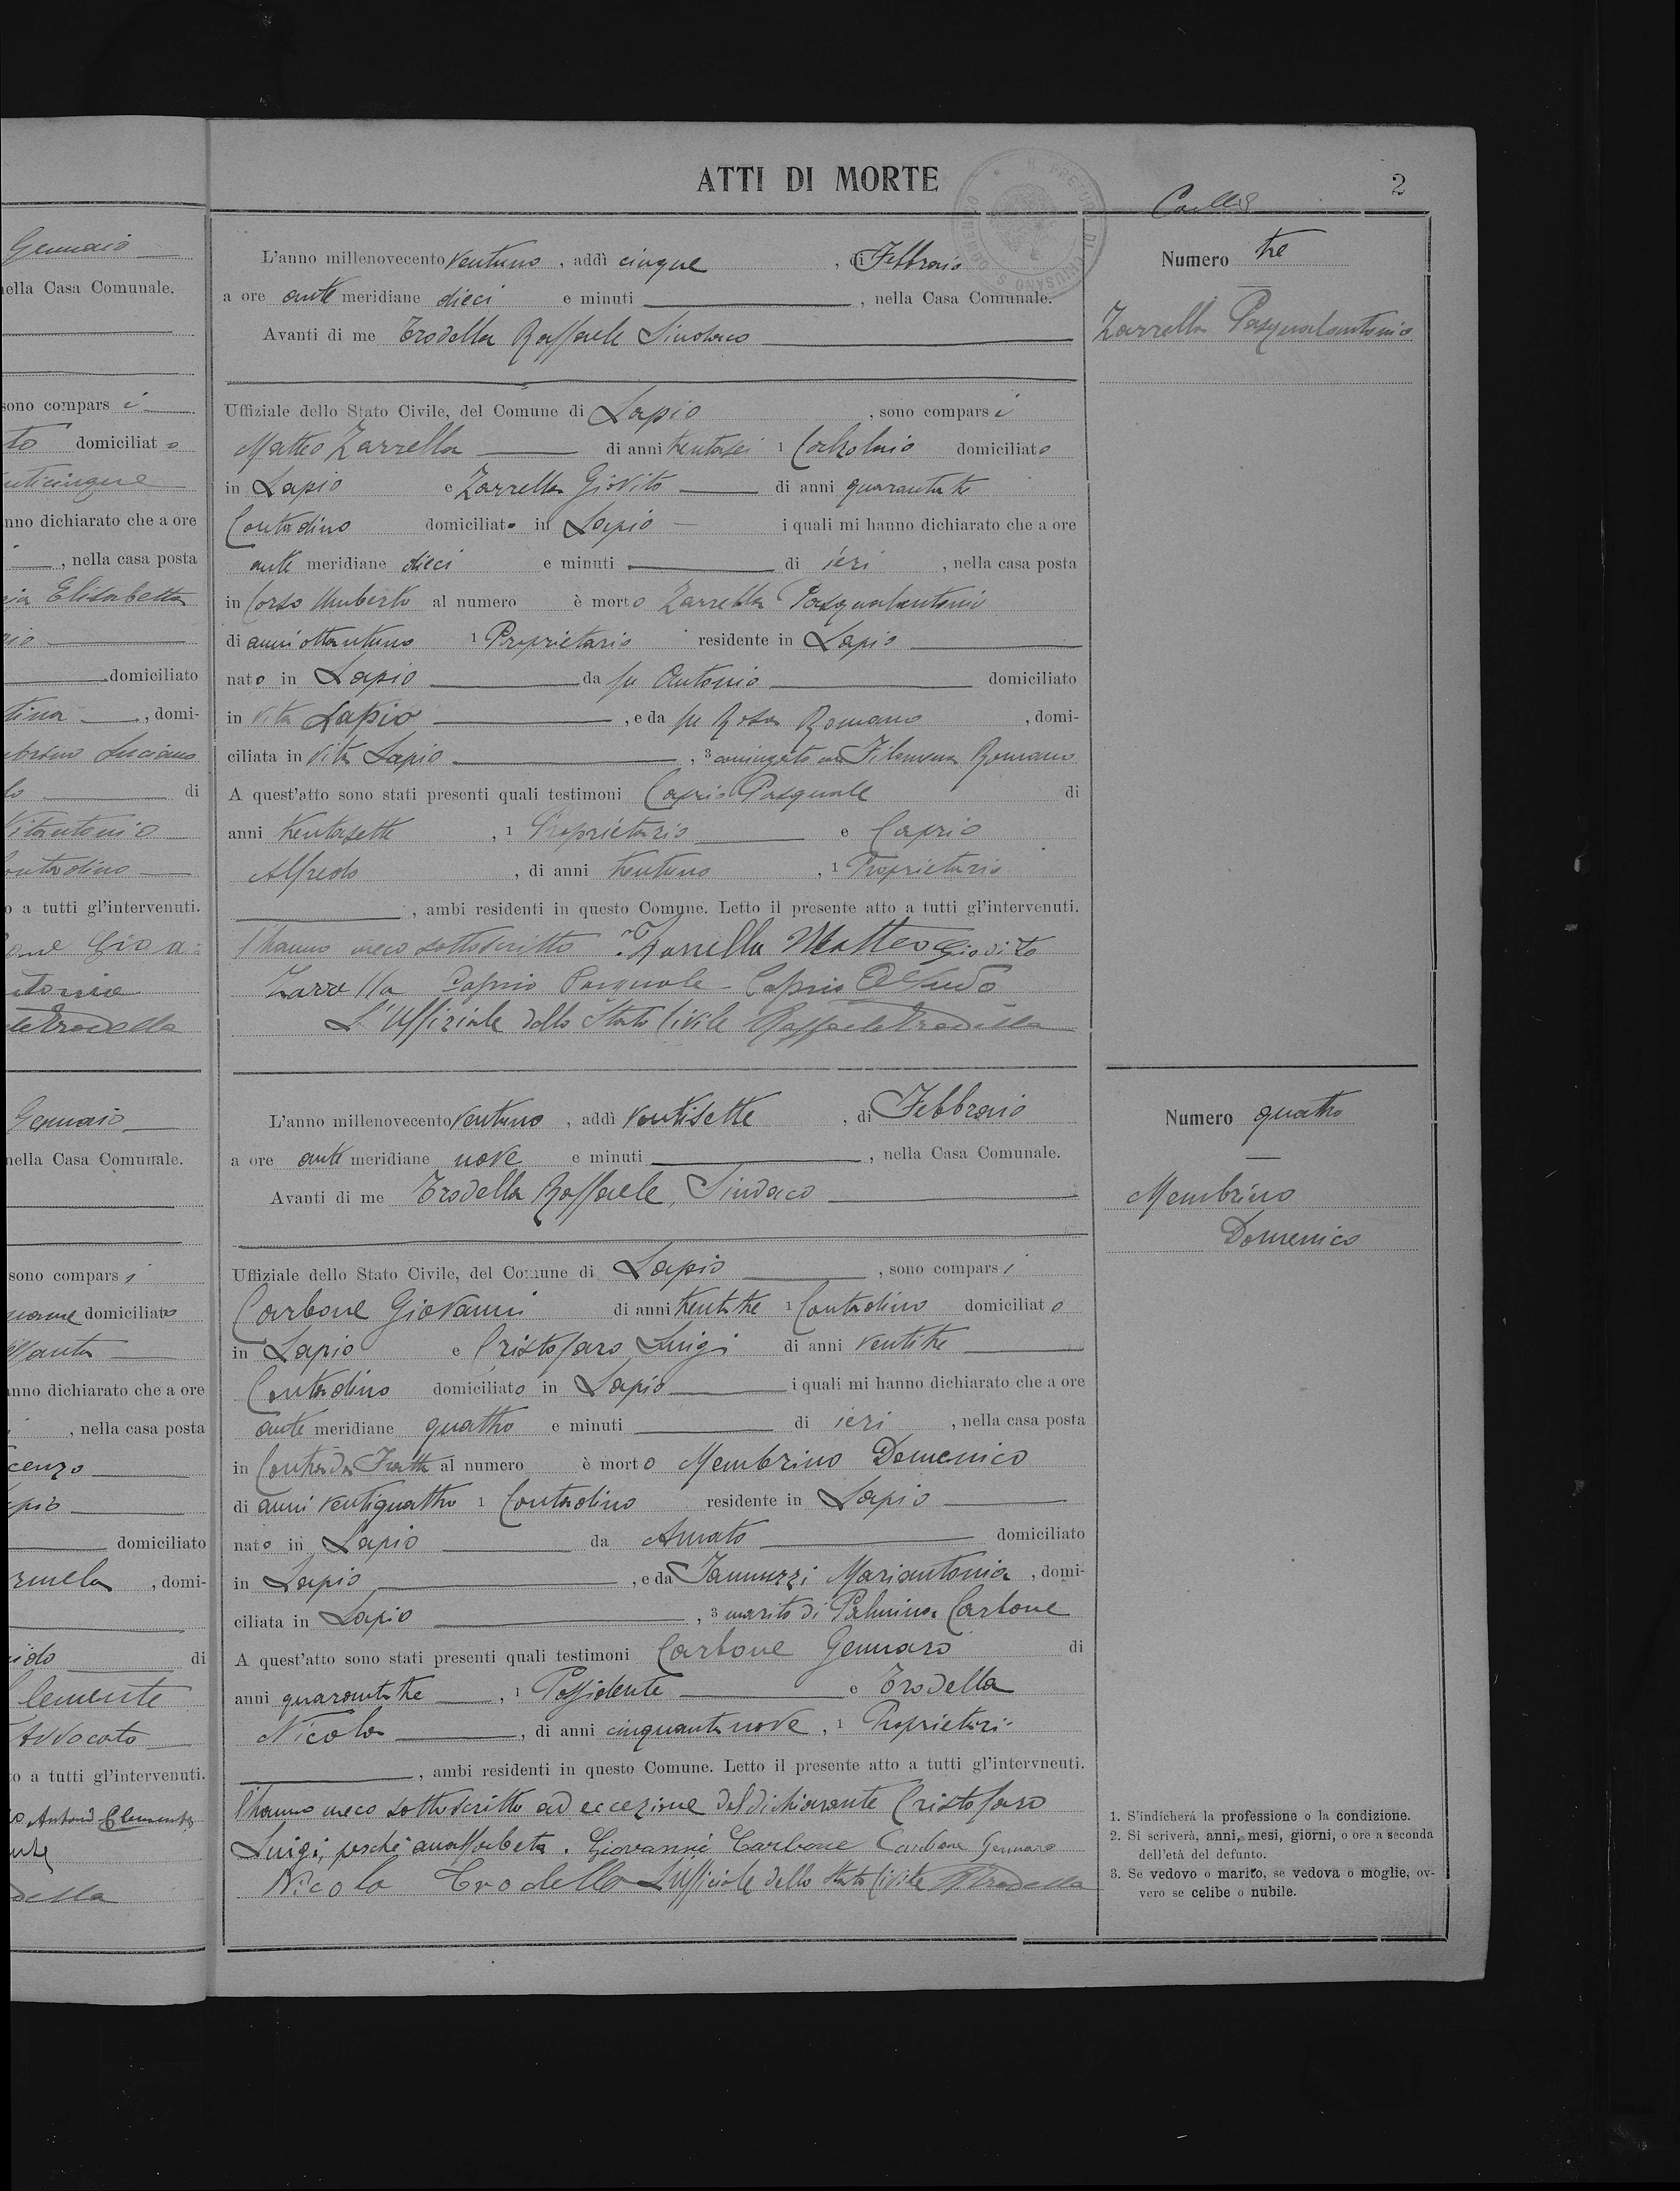 ATTI DI MORTE
2
Gennaio
nella Casa Comunale.
sono compars i
to domiciliato
nticinque
nno dichiarato che a ore
, nella casa posta
Elisabetta
domiciliato
tina , domi-
Luciano
di
Vitantonio
ontadino
o a tutti gl'intervenuti.
L'anno millenovecento ventuno, addì cinque, di Febbraio
a ore ante meridiane dieci e minuti, nella Casa Comunale.
Avanti di me Trodella Raffaele Sindaco
Uffiziale dello Stato Civile, del Comune di Lapio, sono compars i
Matteo Zarrella di anni trentasei 1 Calzolaio domiciliato
in Lapio e Zarrella Giovito di anni quarantatre
Contadino domiciliato in Lapio i quali mi hanno dichiarato che a ore
ante meridiane dieci e minuti di ieri, nella casa posta
in Corso Umberto al numero è morto Zarrella Pasqualantonio
di anni ottantuno 1 Proprietario residente in Lapio
nato in Lapio da fu Antonio domiciliato
in vita Lapio, e da fu Rosa Romano, domi-
ciliata in vita Lapio, 3 coniugato con Filomena Romano
A quest'atto sono stati presenti quali testimoni Caprio Pasquale di
anni trentasette, 1 Proprietario e Caprio
Alfredo, di anni trentuno, 1 Proprietario
, ambi residenti in questo Comune. Letto il presente atto a tutti gl'intervenuti.
l'hanno meco sottoscritto Zarrella Matteo Giovito
Zarrella Caprio Pasquale - Caprio Alfredo
L'Uffiziale dello Stato Civile Raffaele Trodella
Numero tre
Zarrella Pasqualantonio
Gennaio
nella Casa Comunale.
sono compars i
domiciliato
anno dichiarato che a ore
, nella casa posta
cenzo
domiciliato
, domi-
di
Clemente
Avvocato
to a tutti gl'intervenuti.
Antonio Clemente
L'anno millenovecento ventuno, addì ventisette, di Febbraio
a ore ante meridiane nove e minuti, nella Casa Comunale.
Avanti di me Trodella Raffaele, Sindaco
Uffiziale dello Stato Civile, del Comune di Lapio, sono compars i
Carbone Giovanni di anni trentatre 1 Contadino domiciliato
in Lapio e Cristofaro Luigi di anni ventitre
Contadino domiciliato in Lapio i quali mi hanno dichiarato che a ore
ante meridiane quattro e minuti di ieri, nella casa posta
in Contrada Fratta al numero è morto Membrino Domenico
di anni ventiquattro 1 Contadino residente in Lapio
nato in Lapio da Amato domiciliato
in Lapio, e da Iannuzzi Mariantonia, domi-
ciliata in Lapio, 3 marito di Palmina Carbone
A quest'atto sono stati presenti quali testimoni Carbone Gennaro di
anni quarantatre, 1 Possidente e Trodella
Nicola, di anni cinquantanove, 1 Proprietari
, ambi residenti in questo Comune. Letto il presente atto a tutti gl'intervnenti.
l'hanno meco sottoscritto ad eccezione del dichiarante Cristofaro
Luigi, perché analfabeta. Giovanni Carbone Carbone Gennaro
Nicola Trodella L'Ufficiale dello Stato Civile RTrodella
Numero quattro
Membrino
Domenico
1. S'indicherá la professione o la condizione.
2. Si scriverà, anni, mesi, giorni, o ore a seconda
dell'età del defunto.
3. Se vedovo o marito, se vedova o moglie, ov-
vero se celibe o nubile.